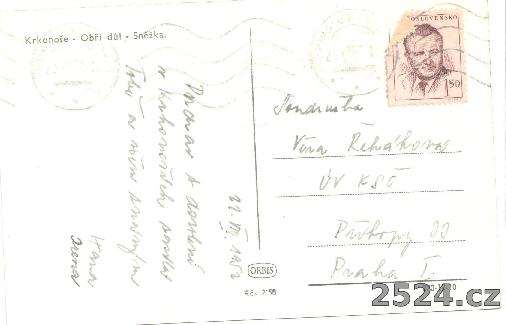 Krkonoše - Obří důl - Sněžka.
OSLOVENSKO
1.50
Pozdrav z dovolené
v Krkonoších
Tobě a všem známým
Hana
Irena
22. VII. 1952
Soudružka
Věra Řeháková
ÚV KSČ
Příkopy 33
Praha I.
ORBIS
2524.cz